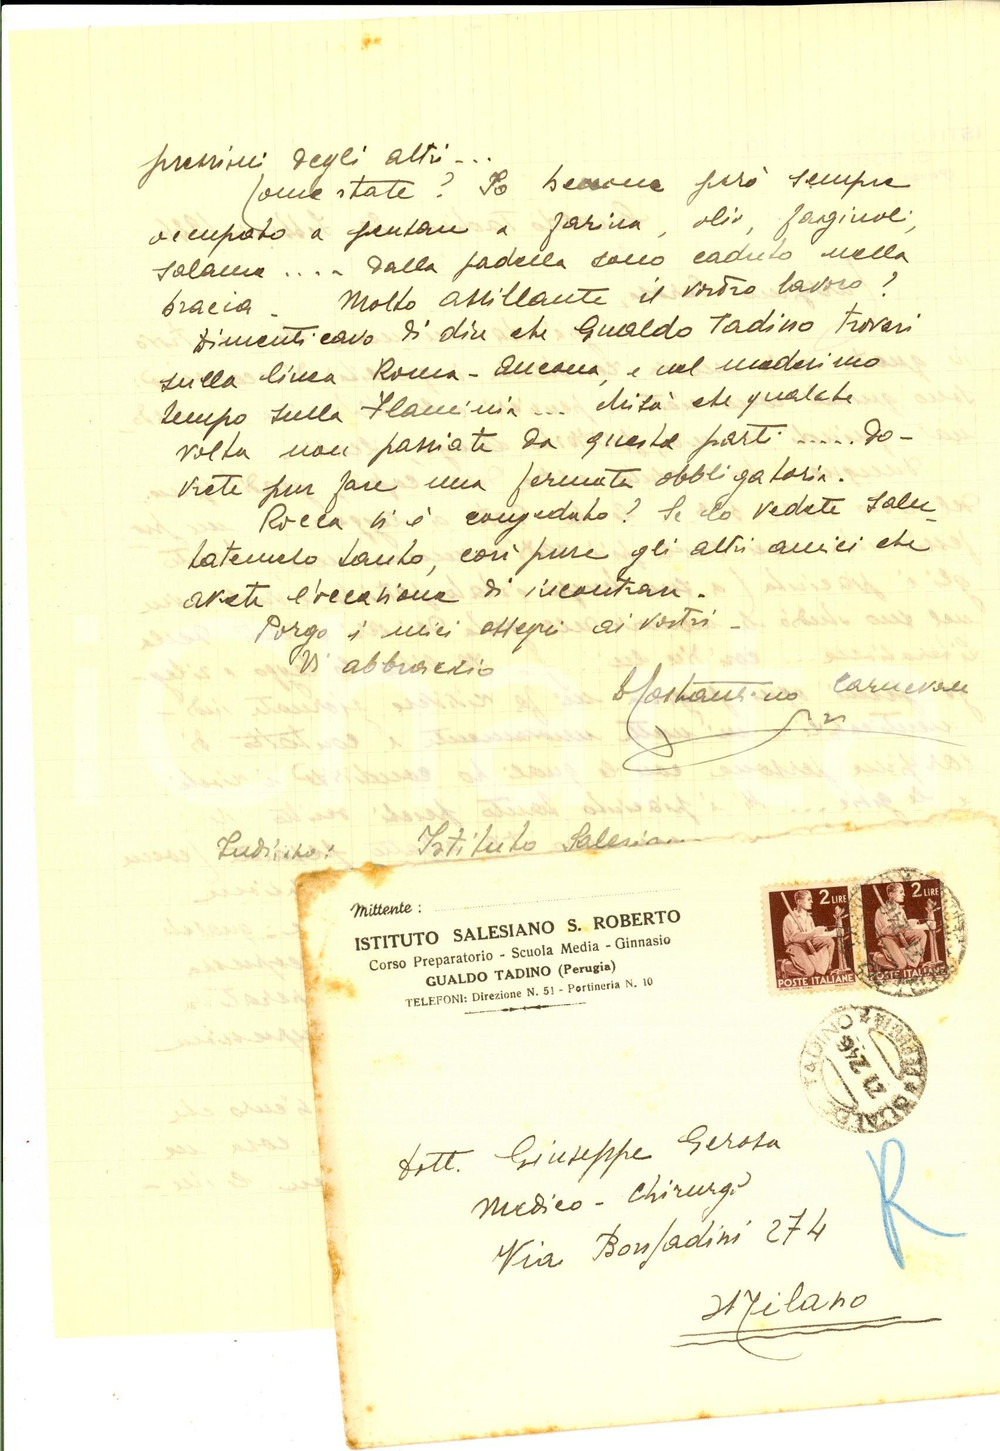 pressioni degli altri ...
Come state? Io benone però sempre
occupato a pensare a farina, olio, faginoli,
salame .... Dalla padella sono caduto nella
bracia. Molto assillante il vostro lavoro?
Dimenticavo di dire che Gualdo Tadino trovasi
sulla linea Roma - Ancona, e nel medesimo
tempo sulla Flaminia ... chissà che qualche
volta non passiate da queste parti ..... Do-
vrete pur fare una fermata obbligatoria.
Rocca si è congedato? Se lo vedete salu-
tatemelo tanto, così pure gli altri amici che
avete l'occasione di incontrare.
Porgo i miei ossequi ai vostri -
Vi abbraccio
D Costantino Carnevale
Indirizzo: Istituto Salesiano
Mittente:
ISTITUTO SALESIANO S. ROBERTO
Corso Preparatorio - Scuola Media - Ginnasio
GUALDO TADINO (Perugia)
TELEFONI: Direzione N. 51 - Portineria N. 10
2 LIRE
POSTE ITALIANE
2 LIRE
POSTE ITALIANE
GUALDO TADINO
21 2 46
Dott. Giuseppe Gerosa
Medico - Chirurgo
Via Bonfadini 274
Milano
R